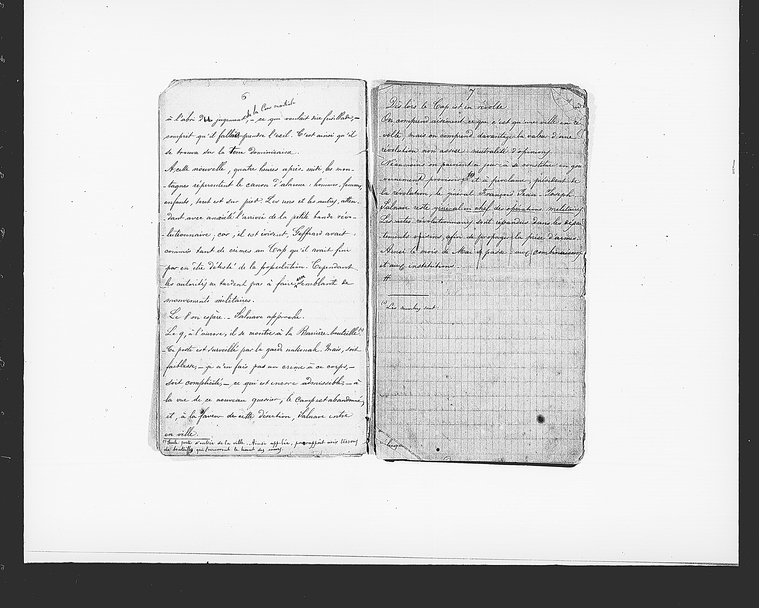 6
à l'abri du jugement de la Cour martiale
– ce qui voulait dire fusillade, –
comprit qu'il fallait prendre l'exil. C'est ainsi qu'il
se trouva sur la terre dominicaine.
A cette nouvelle, quatre heures après midi, les mon-
tagnes répercutent le canon d'alarme; hommes, femmes,
enfants, tout est sur pied. Les uns et les autres, atten-
dant avec anxiété l'arrivée de la petite bande révo-
lutionnaire, car, il est évident, Geffrard avait
commis tant de crimes au Cap qu'il avait fini
par en être détesté de la population. Cependant
les autorités ne tardent pas à faire semblant de
mouvements militaires.
Le 8 on espère. – Salnave approche.
Le 9, à l'aurore, il se montre à la Barrière-bouteille (1)
Ce poste est surveillé par la garde nationale. Mais, soit
faiblesse, – je n'en fais pas un crime à ce corps, –
soit complicité, – ce qui est encore admissible – à
la vue de ce nouveau guerrier, le camp est abandonné,
et, à la faveur de cette désertion, Salnave entre
en ville.
(1) Seule porte d'entrée de la ville. Ainsi appelée, par rapport aux tessons
de bouteilles qui couvraient le haut des murs.
7
Dès lors le Cap est en révolte.
On comprend aisément ce que c'est qu'une ville en ré-
volte, mais on comprend davantage la valeur d'une
révolution non assise: neutralité d'opinions.
Néanmoins on parvient à se constituer un gou-
vernement provisoire et à proclamer, président de
la révolution, le général François Jean-Joseph.
Salnave reste général en chef des opérations militaires.
Les autres révolutionnaires, sont répandus dans les dépar-
tements voisins, afin de propager la prise d'armes.
Ainsi le mois de Mai se passe aux combinaisons
et aux institutions.
#
(1) Les